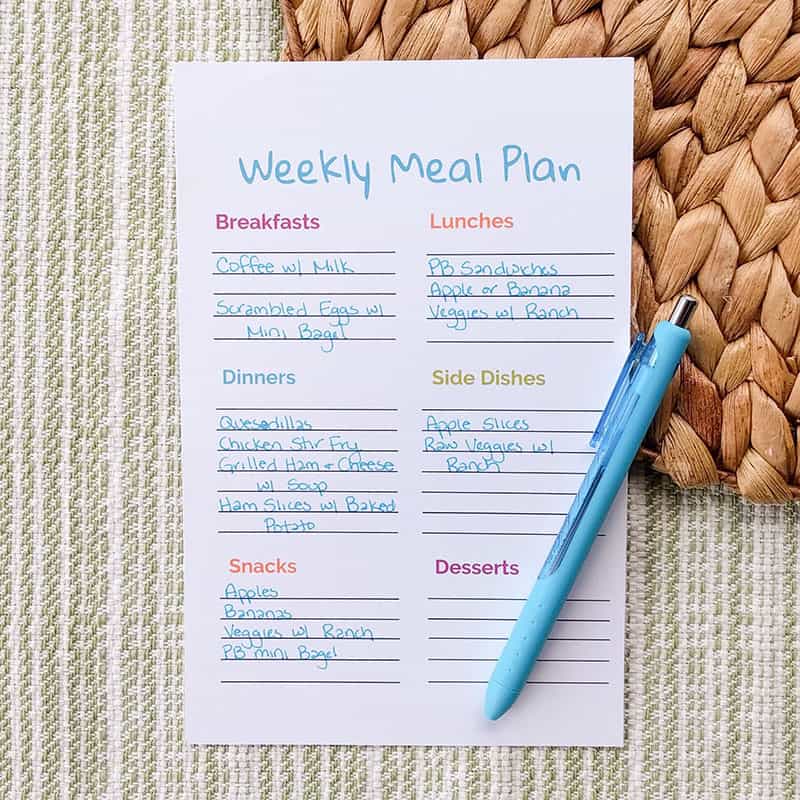 Weekly Meal Plan
Breakfasts
Coffee w/ Milk
Scrambled Eggs w/
Mini Bagel
Lunches
PB Sandwiches
Apple or Banana
Veggies w/ Ranch
Dinners
Quesadillas
Chicken Stir Fry
Grilled Ham + Cheese
w/ Soup
Ham Slices w/ Baked
Potato
Side Dishes
Apple Slices
Raw Veggies w/
Ranch
Snacks
Apples
Bananas
Veggies w/ Ranch
PB mini Bagel
Desserts